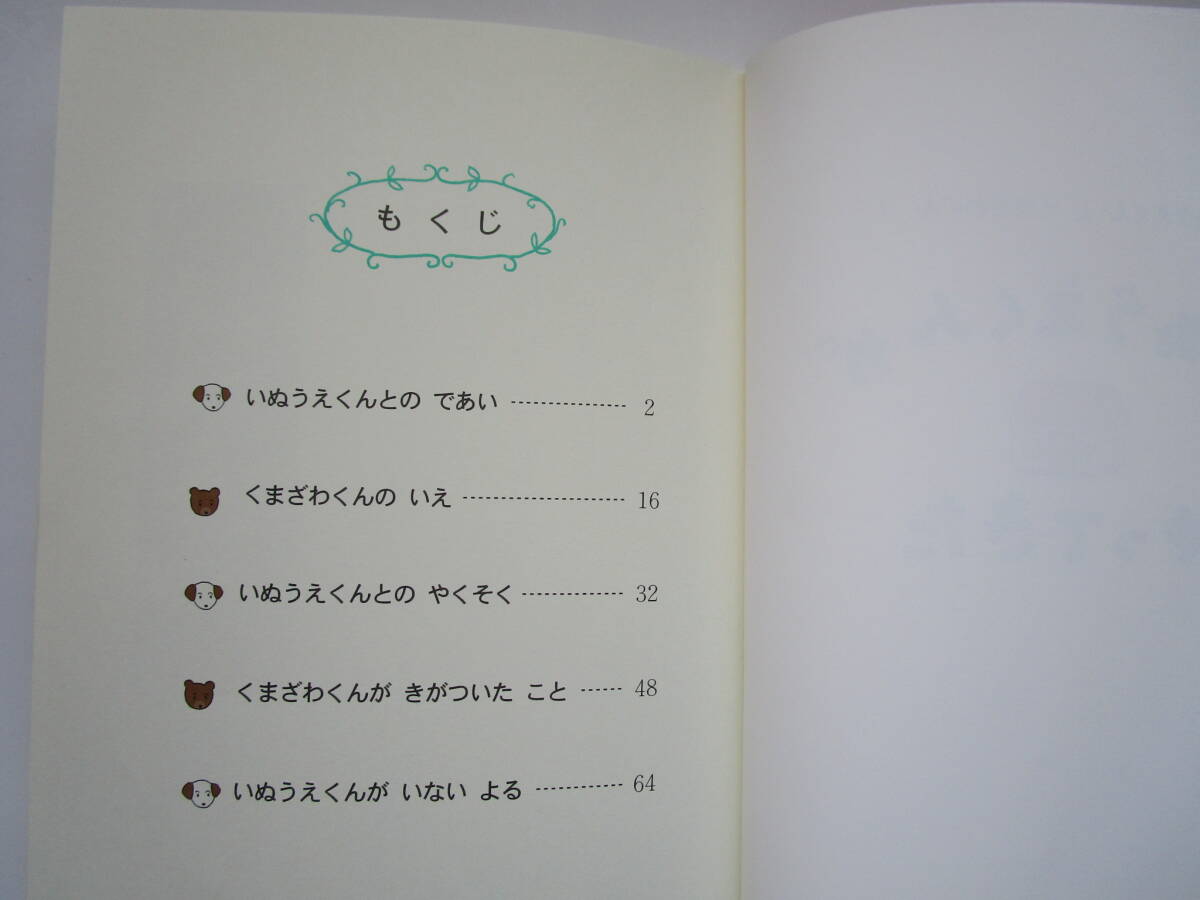 もくじ
いぬうえくんとの であい ………… 2
くまざわくんの いえ ………… 16
いぬうえくんとの やくそく ………… 32
くまざわくんが きがついた こと …… 48
いぬうえくんが いない よる ………… 64